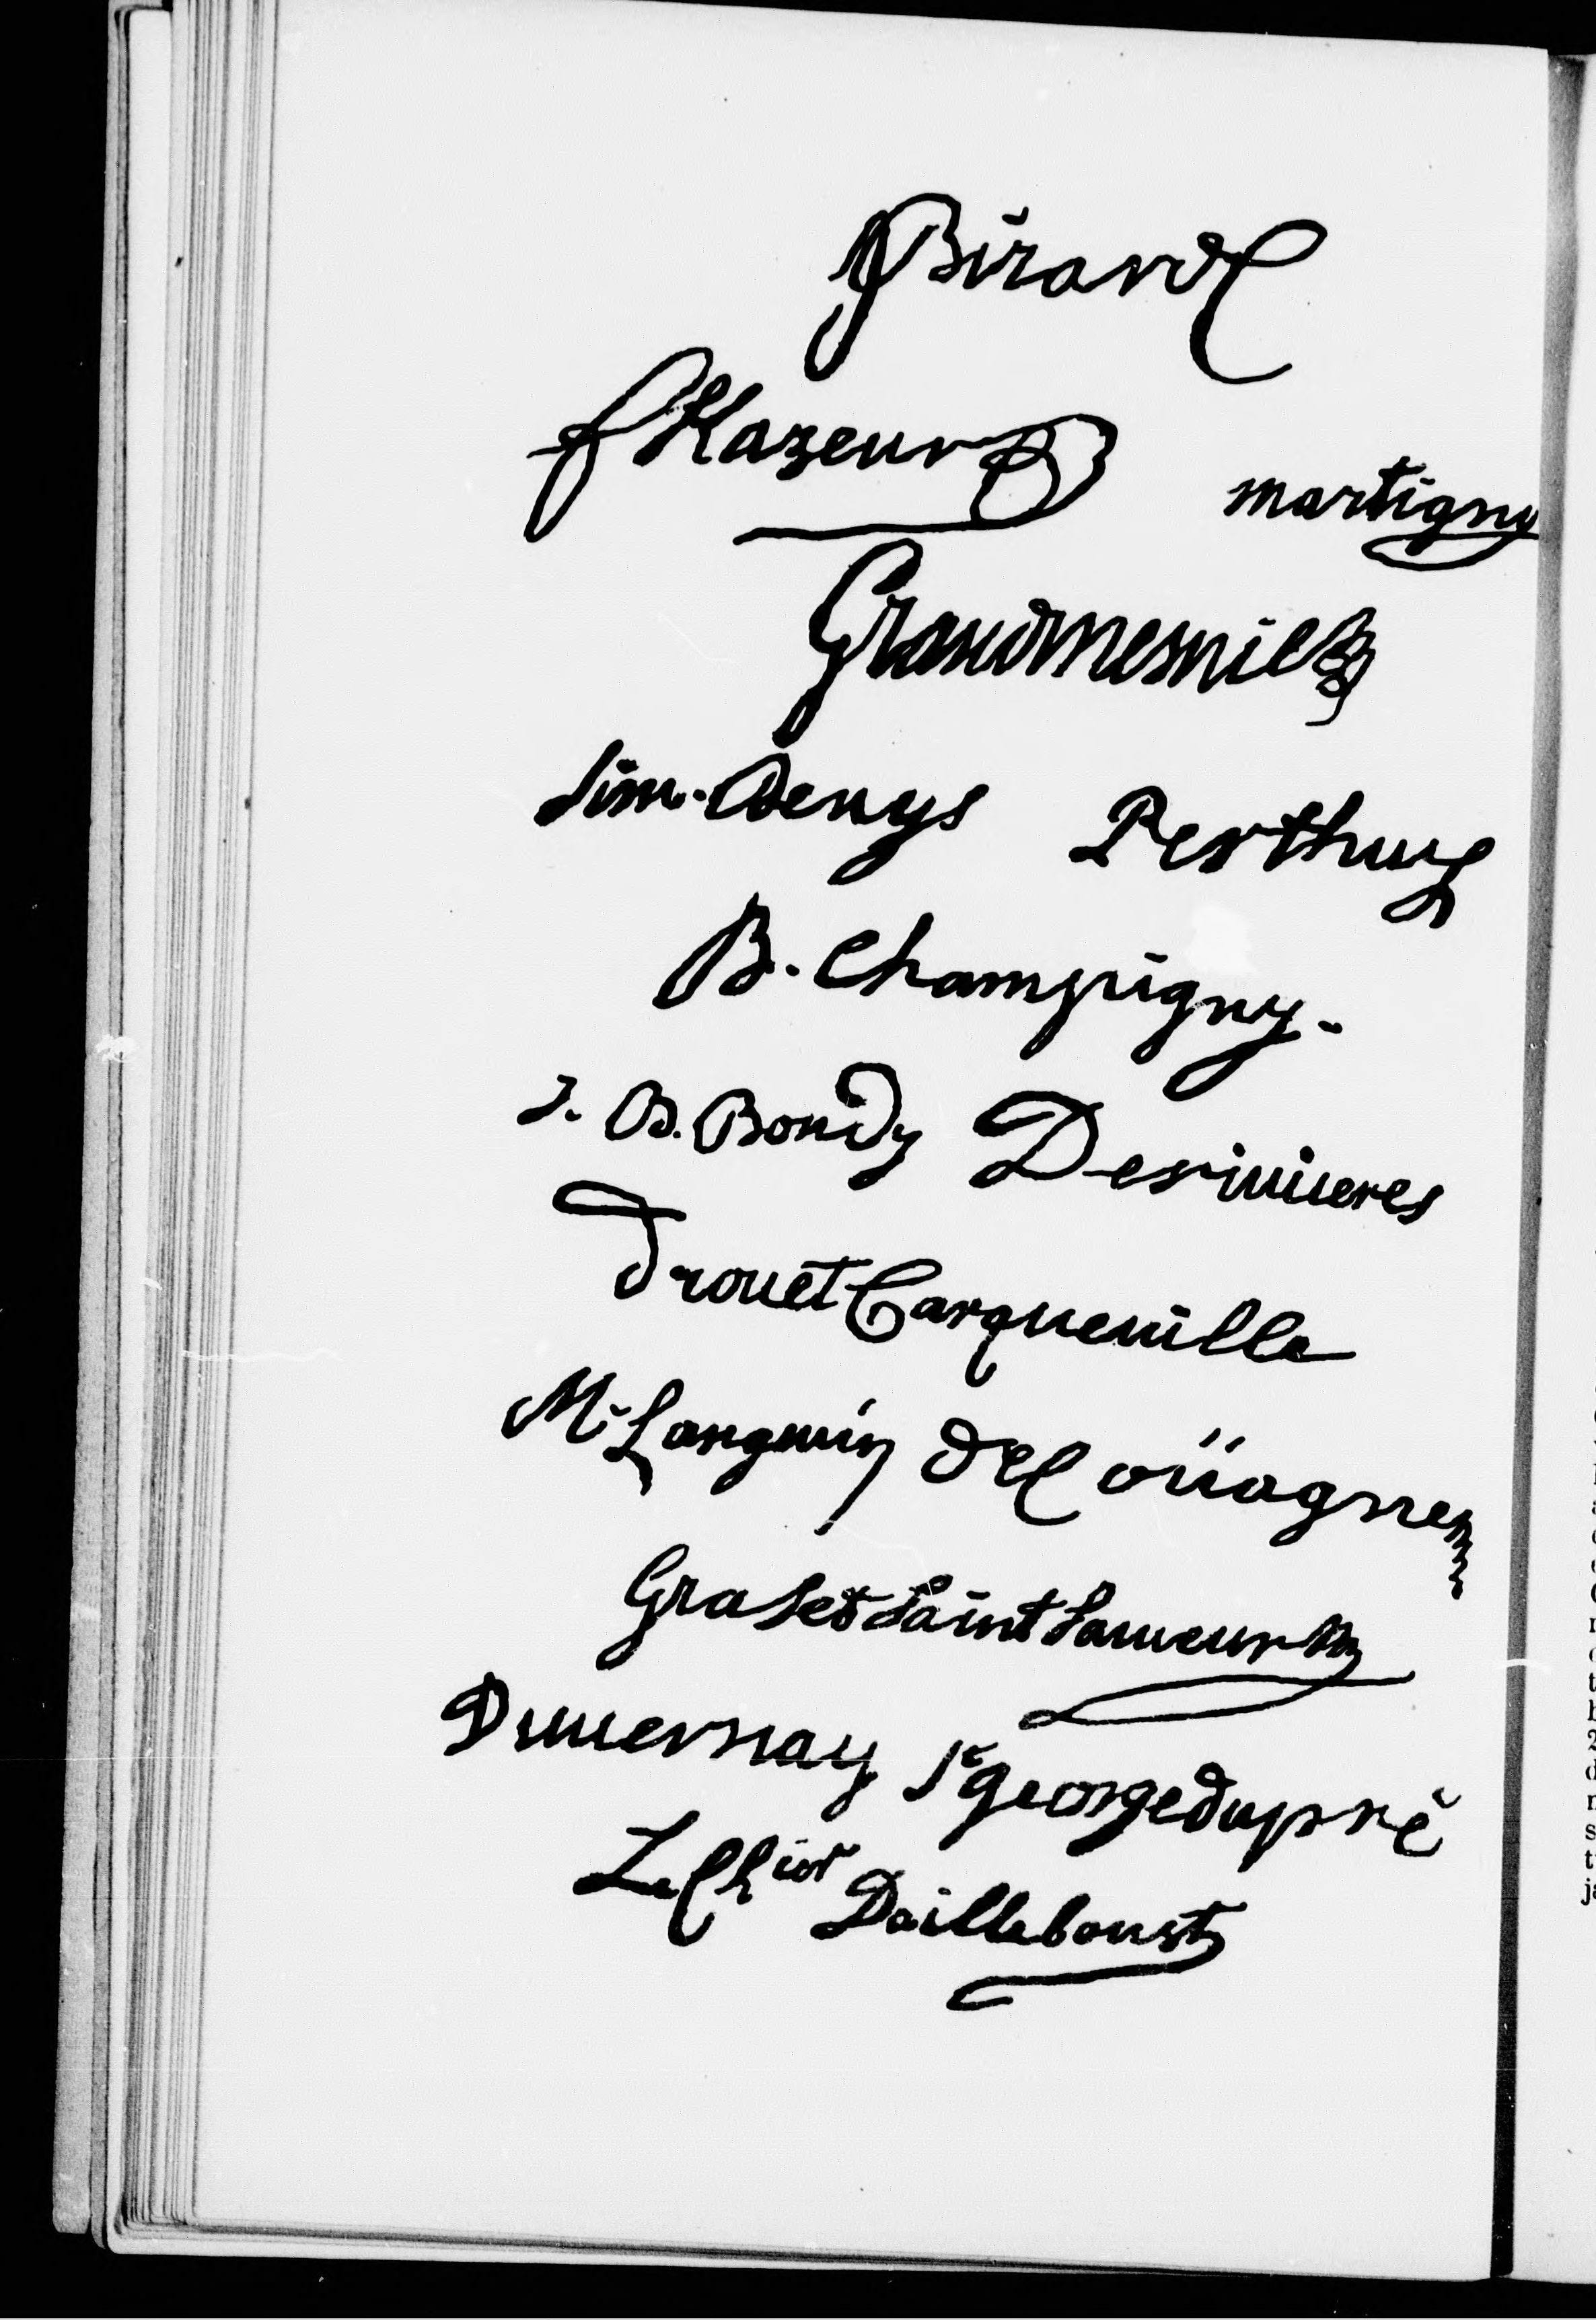 Birard
f Hazeur
martigny
Grandmesnil
Sim. Denys Perthuys
B. Champigny.
J. D. Bondy Deriuieres
Drouet Carqueuille
M. Langevin
Graset Saint Sauueur
Duuernay St george dupré
Le Chier Dailleboust